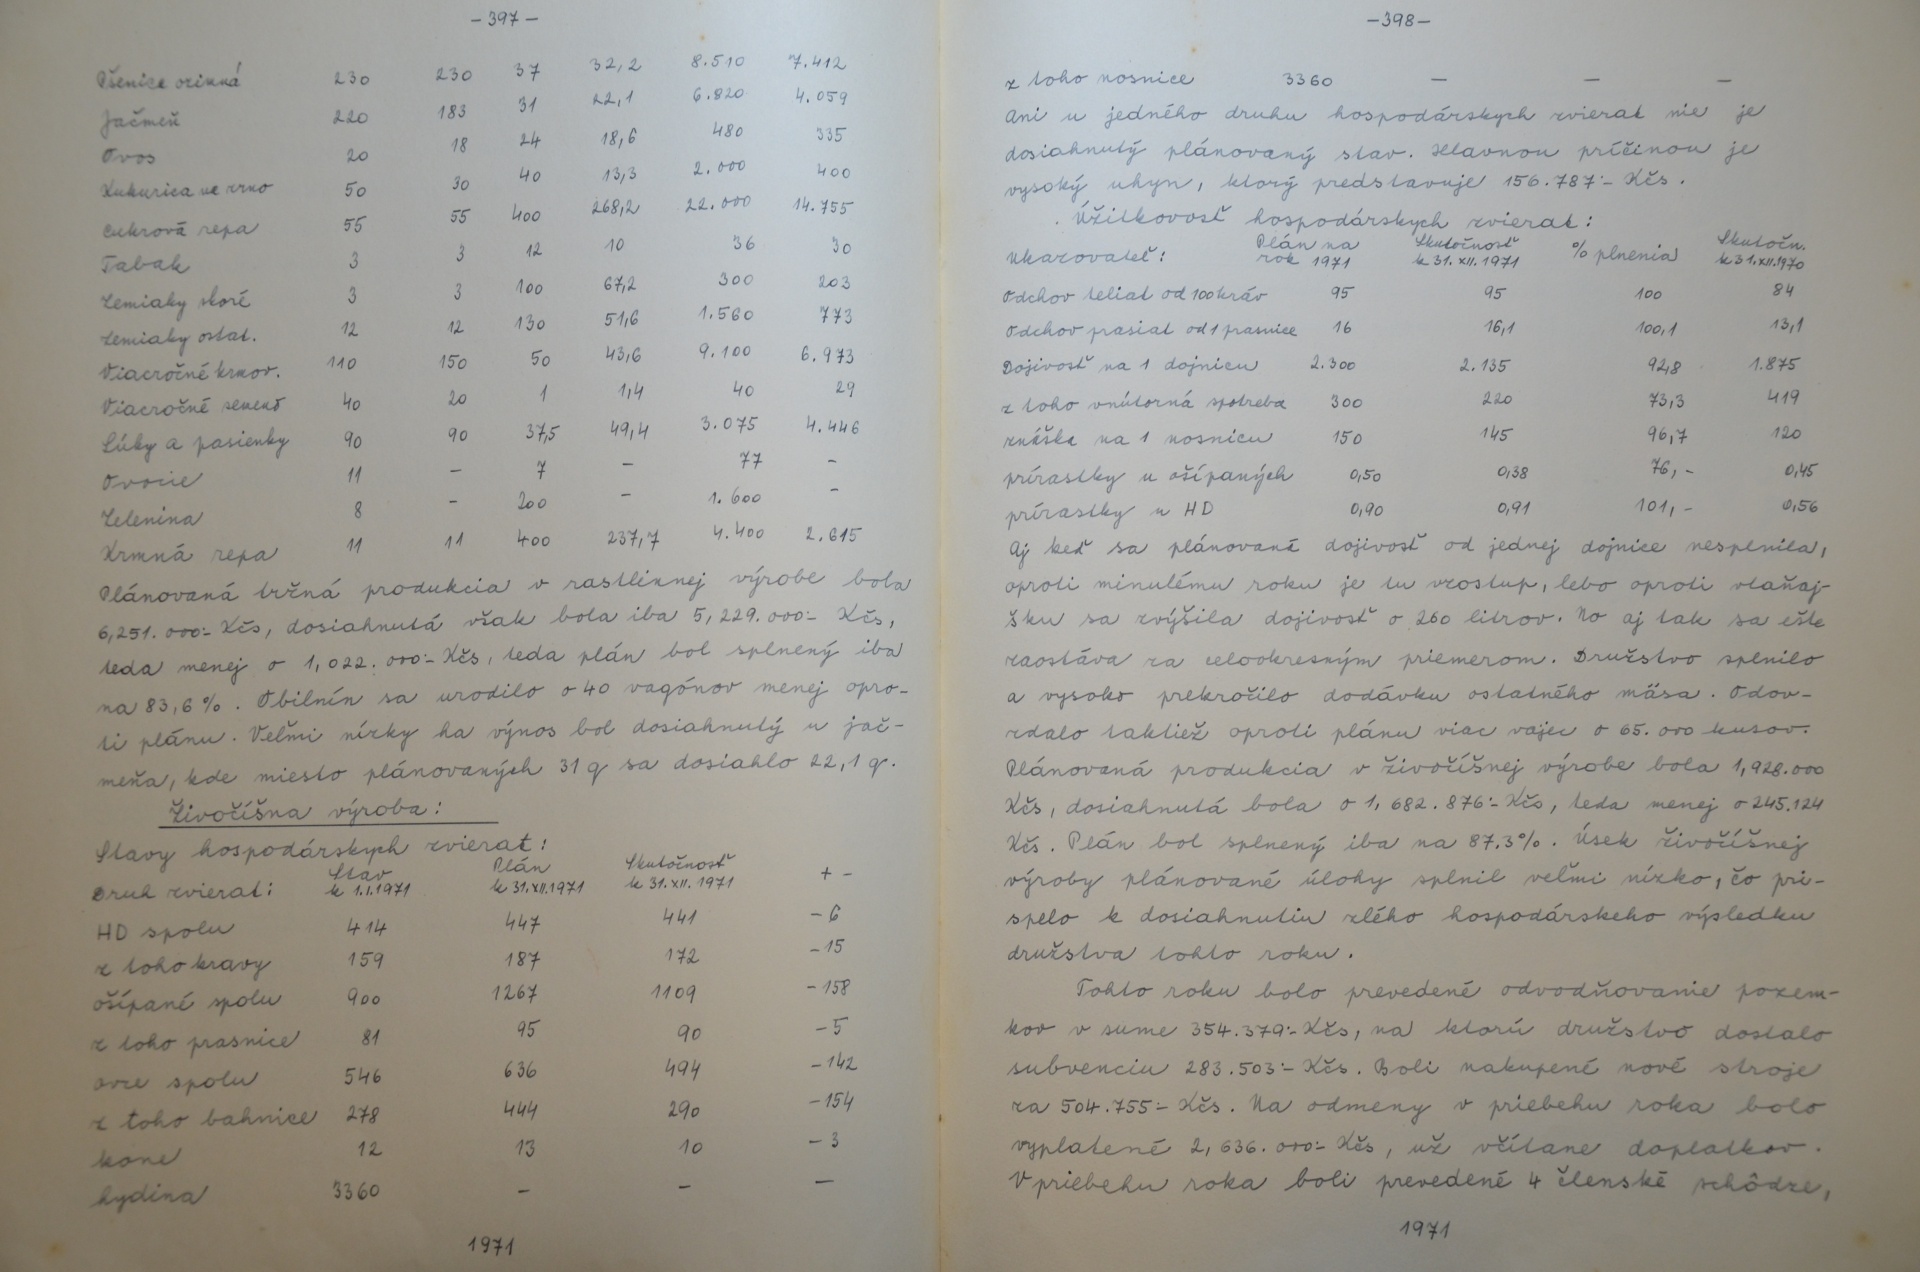 -397-
Pšenice ozimná 230 230 37 32,2 8.510 7.412
Jačmeň 220 183 31 22,1 6.820 4.059
Ovos 20 18 24 18,6 480 335
Kukurica na zrno 50 30 40 13,3 2.000 400
cukrová repa 55 55 400 268,2 22.000 14.755
Tabak 3 3 12 10 36 30
Zemiaky skoré 3 3 100 67,2 300 203
zemiaky ostat. 12 12 130 51,6 1.560 773
Viacročné krmov. 110 150 50 43,6 9.100 6.973
Viacročné semenš 40 20 1 1,4 40 29
Lúky a pasienky 90 90 37,5 49,4 3.075 4.446
Ovocie 11 - 7 - 77 -
Zelenina 8 - 200 - 1.600 -
Krmná repa 11 11 400 237,7 4.400 2.615
Plánovaná tržná produkcia v rastlinnej výrobe bola
6,251.000:- Kčs, dosiahnutá však bola iba 5,229.000:- Kčs,
teda menej o 1,022.000:- Kčs, teda plán bol splnený iba
na 83,6%. Obilnín sa urodilo o 40 vagónov menej opro-
ti plánu. Veľmi nízky ha výnos bol dosiahnutý u jač-
meňa, kde miesto plánovaných 31 q sa dosiahlo 22,1 q.
Živočíšna výroba:
Stavy hospodárskych zvierat:
Druh zvierat: Stav k 1.I.1971 Plán k 31.XII.1971 Skutočnosť k 31.XII.1971 + -
HD spolu 414 447 441 -6
z toho kravy 159 187 172 -15
ošípané spolu 900 1267 1109 -158
z toho prasnice 81 95 90 -5
ovce spolu 546 636 494 -142
z toho bahnice 278 444 290 -154
kone 12 13 10 -3
hydina 3360 - - -
1971
-398-
z toho nosnice 3360 - - -
Ani u jedného druhu hospodárskych zvierat nie je
dosiahnutý plánovaný stav. Hlavnou príčinou je
vysoký uhyn, ktorý predstavuje 156.787:- Kčs.
Úžitkovosť hospodárskych zvierat:
Ukazovateľ: Plán na rok 1971 Skutočnosť k 31.XII.1971 % plnenia Skutočn. k 31.XII.1970
Odchov teliat od 100 kráv 95 95 100 84
Odchov prasiat od 1 prasnice 16 16,1 100,1 13,1
Dojivosť na 1 dojnicu 2.300 2.135 92,8 1.875
z toho vnútorná spotreba 300 220 73,3 419
znáška na 1 nosnicu 150 145 96,7 120
prírastky u ošípaných 0,50 0,38 76,- 0,45
prírastky u HD 0,90 0,91 101,- 0,56
Aj keď sa plánované dojivosť od jednej dojnice nesplnila,
oproti minulému roku je tu vzostup, lebo oproti vlaňaj-
šku sa zvýšila dojivosť o 260 litrov. No aj tak sa ešte
zaostáva za celookresným priemerom. Družstvo splnilo
a vysoko prekročilo dodávku ostatného mäsa. Odov-
zdalo taktiež oproti plánu viac vajec o 65.000 kusov.
Plánovaná produkcia v živočíšnej výrobe bola 1,928.000
Kčs, dosiahnutá bola o 1,682.876:- Kčs, teda menej o 245.124
Kčs. Plán bol splnený iba na 87.3%. Úsek živočíšnej
výroby plánované úlohy splnil veľmi nízko, čo pri-
spelo k dosiahnutiu zlého hospodárskeho výsledku
družstva tohto roku.
Tohto roku bolo prevedené odvodňovanie pozem-
kov v sume 354.379:- Kčs, na ktorú družstvo dostalo
subvenciu 283.503:- Kčs. Boli nakupené nové stroje
za 504.755:- Kčs. Na odmeny v priebehu roka bolo
vyplatené 2,636.000:- Kčs, už včítane doplatkov.
V priebehu roka boli prevedené 4 členské schôdze,
1971